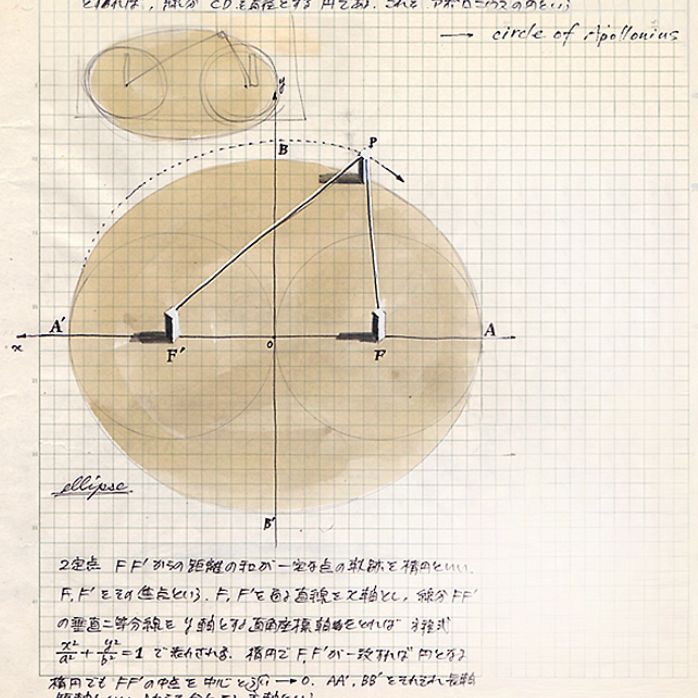 線分 CDを直径とする円である. これを アポロニウスの円という
→ circle of Apollonius
y
B
P
A'
A
x
F'
o
F
ellipse
B'
2定点 F F'からの距離の和が一定な点の軌跡を楕円といい.
F, F'をその焦点という. F, F'を通る直線をx軸とし, 線分FF'
の垂直二等分線を y軸とする直角座標軸をとれば 方程式
x²/a² + y²/b² = 1 で表わされる. 楕円で F, F'が一致すれば 円となる
楕円でも FF'の中点を中心と → 0. AA', BB'をそれぞれ長軸